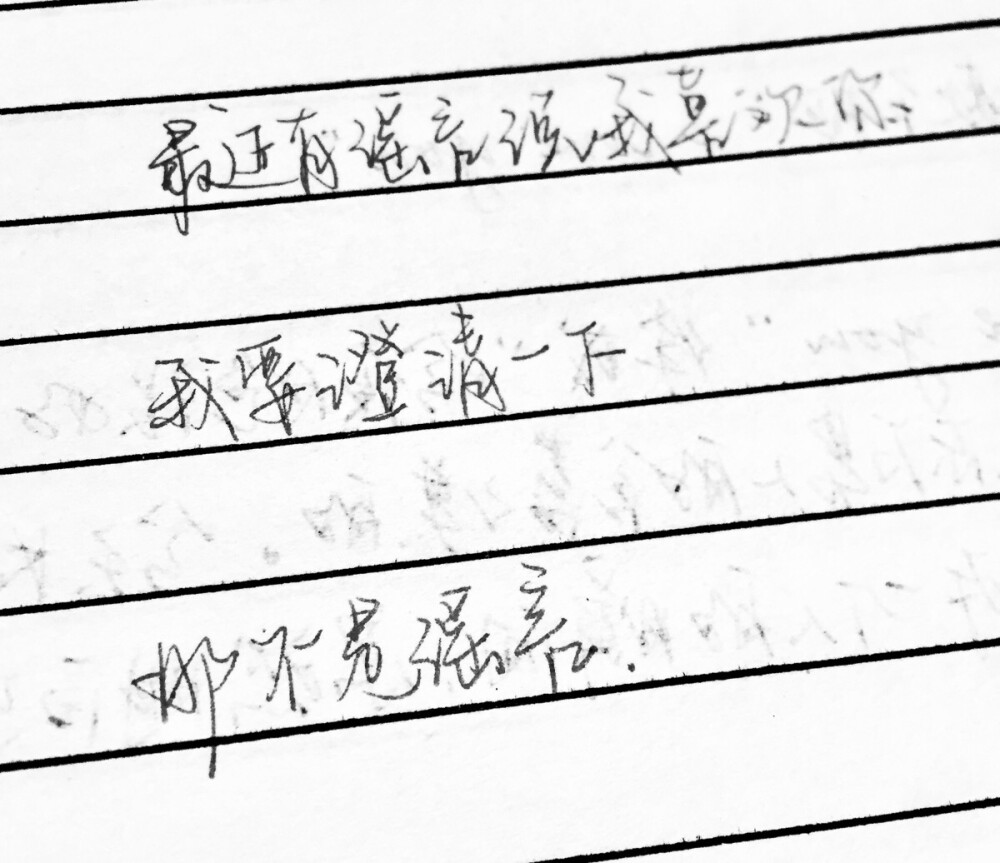 最近有谣言说我喜欢你、
我要澄清一下
那不是谣言.